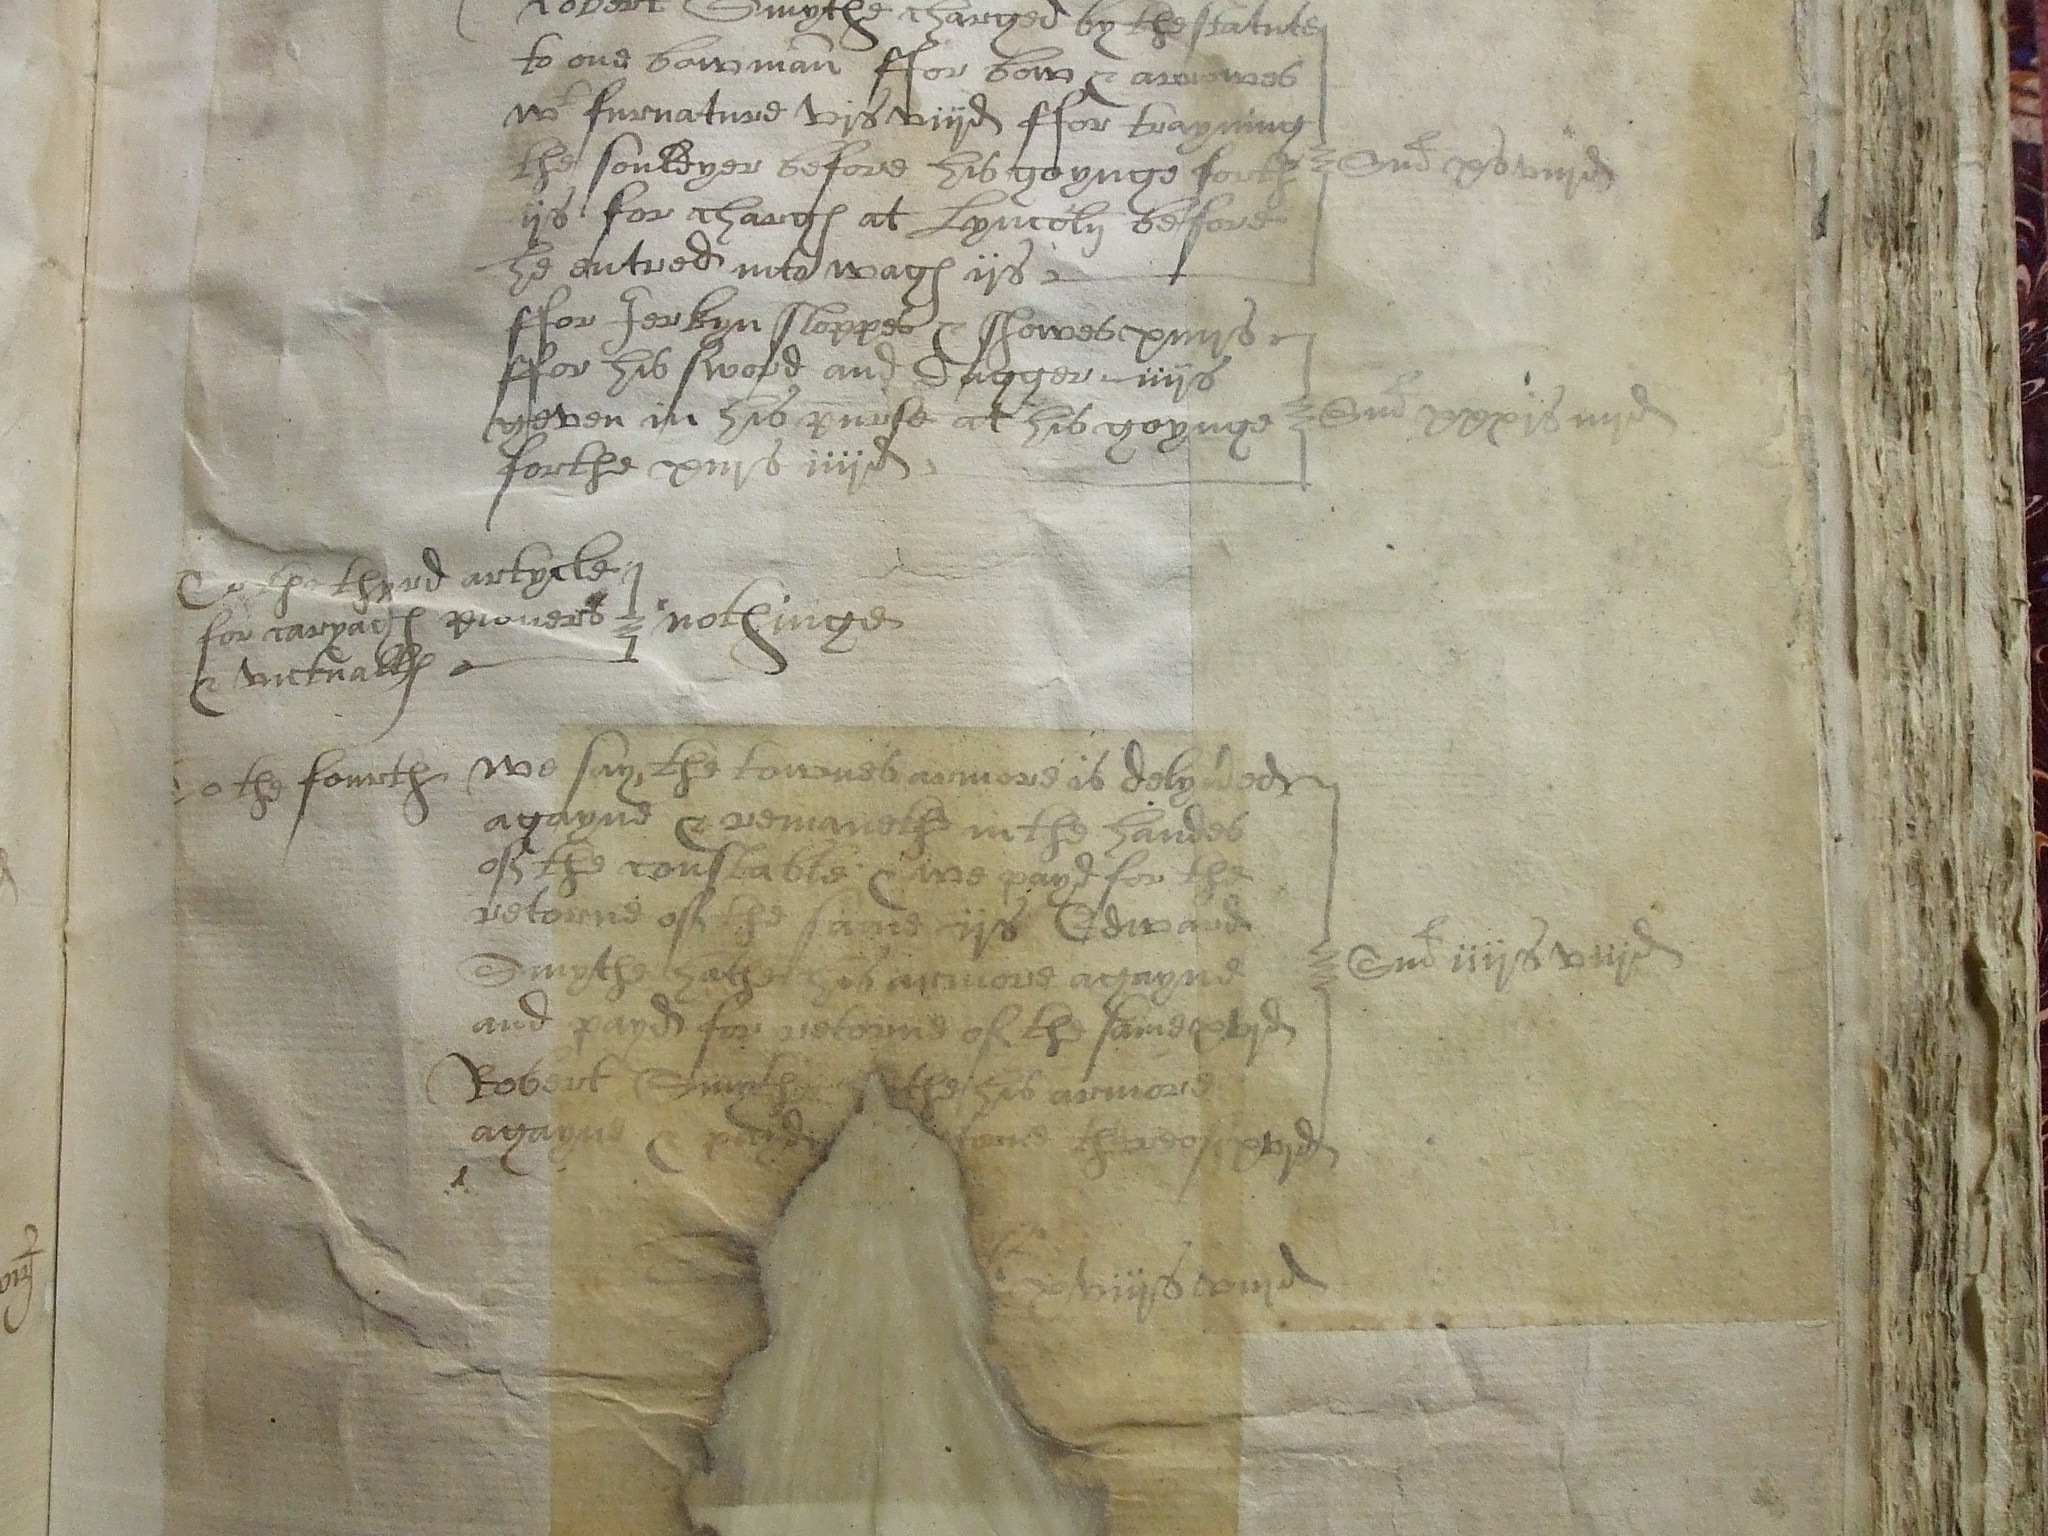 Robert Smythe charged by the statute
to one bowman ffor bow & arrowes
wt furnature vjs viijd ffor trayning
the souldyer before his goynge forth
ijs for charg at Lyncoln before
he entred into wag ijs
Sm xs viijd
ffor Jerkyn sloppes & showes xiiijs
ffor his sword and dagger iiijs
yeven in his purse at his goynge
forthe xiijs iiijd
Sm xxxjs iiijd
To the thyrd artycle
for caryag pioners
& victuall
nothinge
To the fourth we say the townes armore is delyvred
agayne & remaneth in the handes
of the constable & we payd for the
retorne of the same ijs Edward
Smythe hathe his armore agayne
and payd for retorne of the same xvjd
Robert Smythe the his armore
agayne & payd torne thereof xvjd
Sm iiijs viijd
viijd